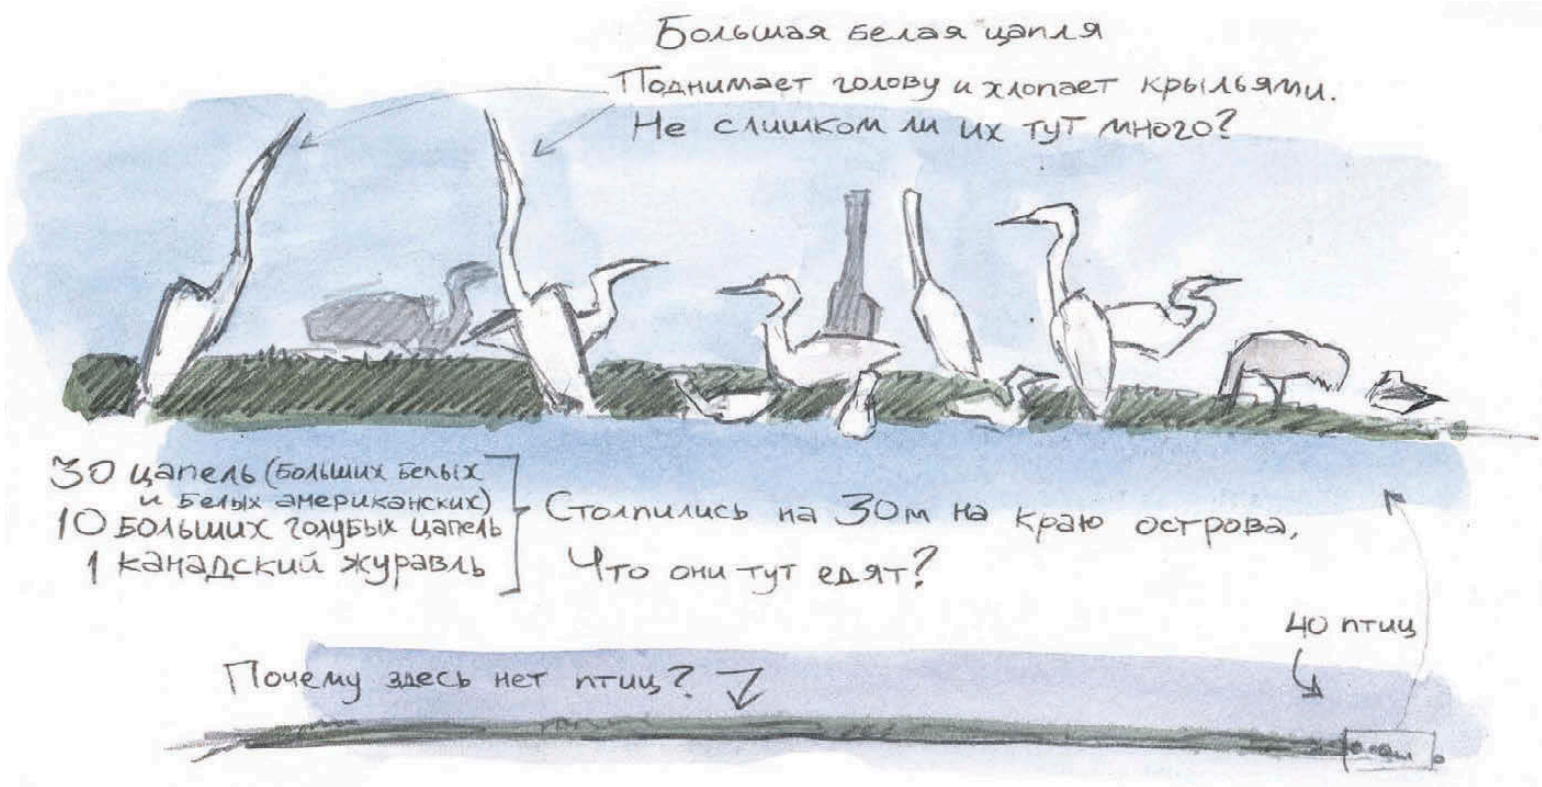 Большая белая цапля
Поднимает голову и хлопает крыльями.
Не слишком ли их тут много?
30 цапель (больших белых
и белых американских)
10 больших голубых цапель
1 канадский журавль
Столпились на 30м на краю острова,
Что они тут едят?
40 птиц
Почему здесь нет птиц?